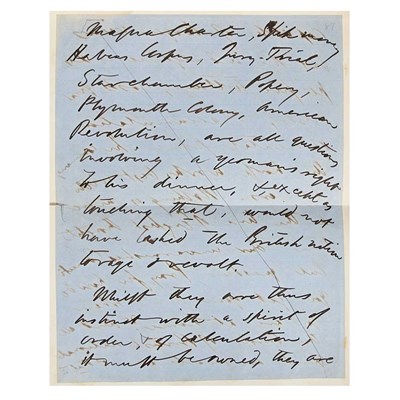 Magna Charta, Ship money
Habeas Corpus, Jury-Trial,
Starchamber, Popery,
Plymouth Colony, American
Revolution, are all questions
involving a yeoman's right
to his dinner, & except as
touching that, would not
have lashed the British nation
to rage & revolt.
Whilst they are thus
instinct with a spirit of
order, & of calculation,
it must be owned, they are